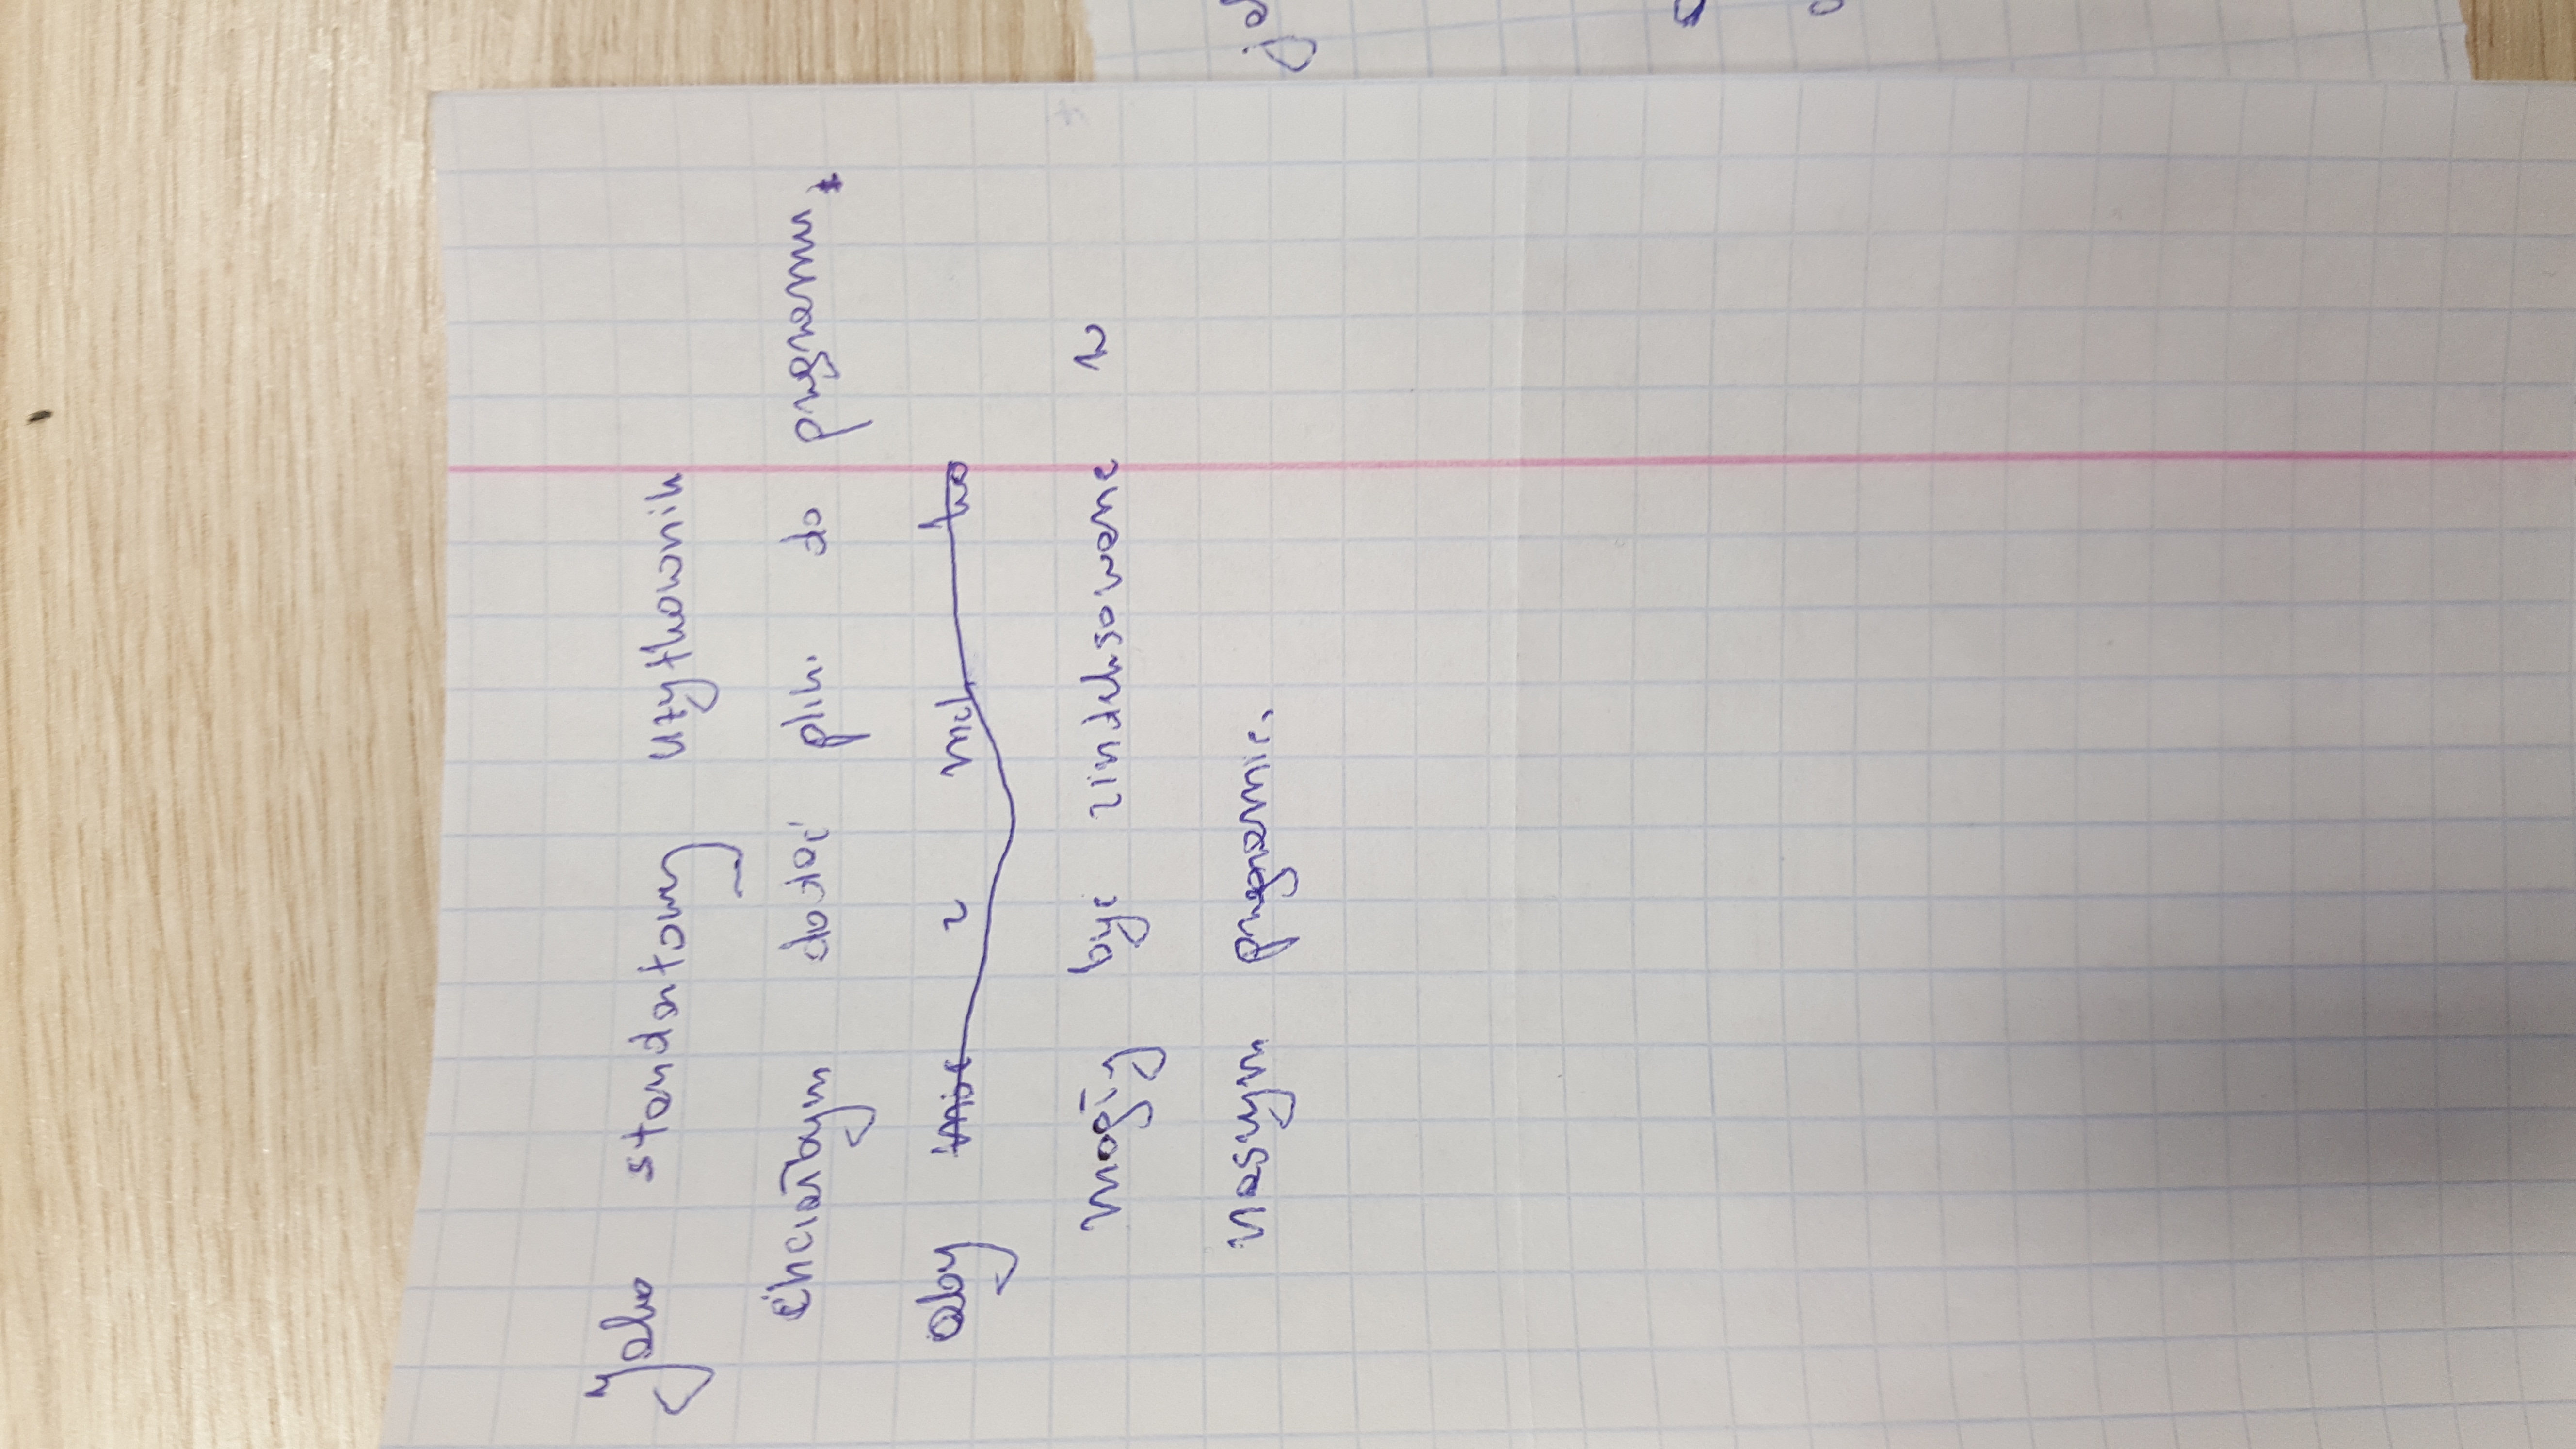 Jako standartowy użytkownik
chciałbym dodać pliki do programu,
aby móc z nich ko
mogły być zindeksowane w
naszym programie.